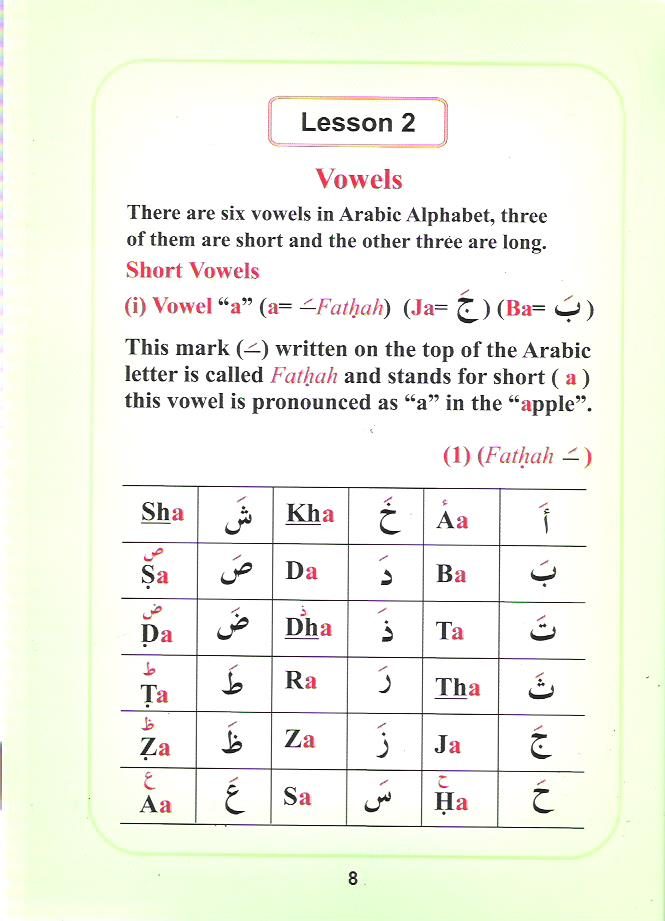 Lesson 2
Vowels
There are six vowels in Arabic Alphabet, three
of them are short and the other three are long.
Short Vowels
(i) Vowel “a” (a= ـَ Fatḥah) (Ja= جَ ) (Ba= بَ )
This mark (ـَ) written on the top of the Arabic
letter is called Fatḥah and stands for short ( a )
this vowel is pronounced as “a” in the “apple”.
(1) (Fatḥah ـَ )
Sha شَ Kha خَ ء Aa أَ
ص Ṣa صَ Da دَ Ba بَ
ض Ḍa ضَ ذ Dha ذَ Ta تَ
ط Ṭa طَ Ra رَ Tha ثَ
ظ Ẓa ظَ Za زَ Ja جَ
ع Aa عَ Sa سَ ح Ḥa حَ
8